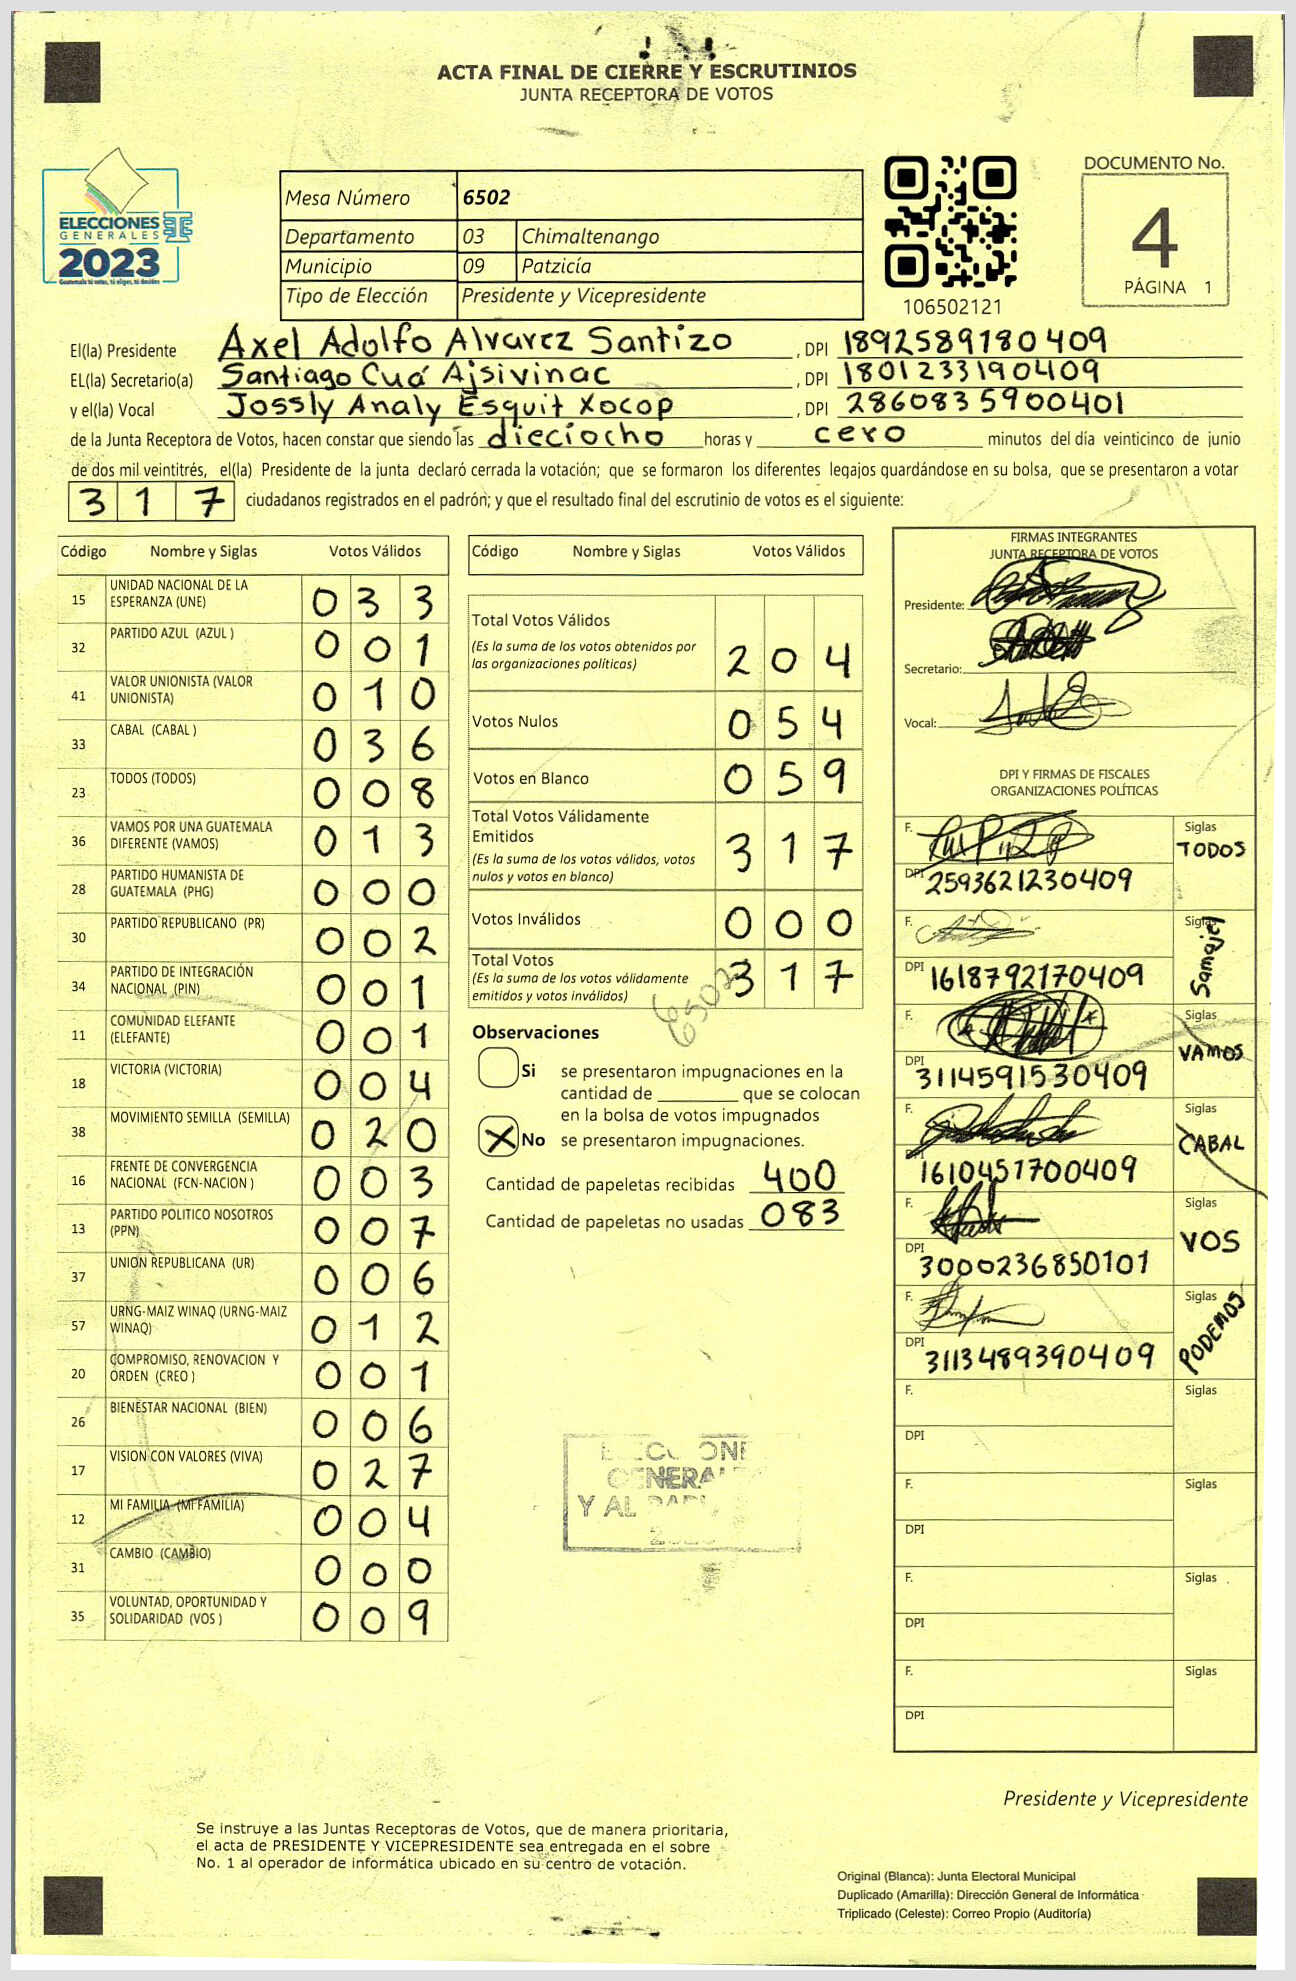 ACTA FINAL DE CIERRE Y ESCRUTINIOS
JUNTA RECEPTORA DE VOTOS
ELECCIONES
GENERALES
2023
Guatemala tú votas, tú eliges, tú decides
Mesa Número 6502
Departamento 03 Chimaltenango
Municipio 09 Patzicía
Tipo de Elección Presidente y Vicepresidente
106502121
DOCUMENTO No.
4
PÁGINA 1
El(la) Presidente Axel Adolfo Alvarez Santizo, DPI 1892589180409
EL(la) Secretario(a) Santiago Cuá Ajsivinac, DPI 1801233190409
y el(la) Vocal Jossly Analy Esquit Xocop, DPI 2860835900401
de la Junta Receptora de Votos, hacen constar que siendo las dieciocho horas y cero minutos del día veinticinco de junio
de dos mil veintitrés, el(la) Presidente de la junta declaró cerrada la votación; que se formaron los diferentes legajos guardándose en su bolsa, que se presentaron a votar
317 ciudadanos registrados en el padrón; y que el resultado final del escrutinio de votos es el siguiente:
Código Nombre y Siglas Votos Válidos
15 UNIDAD NACIONAL DE LA ESPERANZA (UNE) 033
32 PARTIDO AZUL (AZUL ) 001
41 VALOR UNIONISTA (VALOR UNIONISTA) 010
33 CABAL (CABAL ) 036
23 TODOS (TODOS) 008
36 VAMOS POR UNA GUATEMALA DIFERENTE (VAMOS) 013
28 PARTIDO HUMANISTA DE GUATEMALA (PHG) 000
30 PARTIDO REPUBLICANO (PR) 002
34 PARTIDO DE INTEGRACIÓN NACIONAL (PIN) 001
11 COMUNIDAD ELEFANTE (ELEFANTE) 001
18 VICTORIA (VICTORIA) 004
38 MOVIMIENTO SEMILLA (SEMILLA) 020
16 FRENTE DE CONVERGENCIA NACIONAL (FCN-NACION ) 003
13 PARTIDO POLITICO NOSOTROS (PPN) 007
37 UNION REPUBLICANA (UR) 006
57 URNG-MAIZ WINAQ (URNG-MAIZ WINAQ) 012
20 COMPROMISO, RENOVACION Y ORDEN (CREO ) 001
26 BIENESTAR NACIONAL (BIEN) 006
17 VISION CON VALORES (VIVA) 027
12 MI FAMILIA (MI FAMILIA) 004
31 CAMBIO (CAMBIO) 000
35 VOLUNTAD, OPORTUNIDAD Y SOLIDARIDAD (VOS ) 009
Código Nombre y Siglas Votos Válidos
Total Votos Válidos 204
(Es la suma de los votos obtenidos por
las organizaciones políticas)
Votos Nulos 054
Votos en Blanco 059
Total Votos Válidamente
Emitidos 317
(Es la suma de los votos válidos, votos
nulos y votos en blanco)
Votos Inválidos 000
Total Votos 317
(Es la suma de los votos válidamente
emitidos y votos inválidos)
6502
Observaciones
Si se presentaron impugnaciones en la
cantidad de ________ que se colocan
en la bolsa de votos impugnados
X No se presentaron impugnaciones.
Cantidad de papeletas recibidas 400
Cantidad de papeletas no usadas 083
FIRMAS INTEGRANTES
JUNTA RECEPTORA DE VOTOS
Presidente:
Secretario:
Vocal:
DPI Y FIRMAS DE FISCALES
ORGANIZACIONES POLÍTICAS
F. Siglas TODOS
DPI 2593621230409
F. Siglas Samajel
DPI 1618792170409
F. Siglas VAMOS
DPI 3114591530409
F. Siglas CABAL
DPI 1610451700409
F. Siglas VOS
DPI 3000236850101
F. Siglas PODEMOS
DPI 3113489390409
F. Siglas
DPI
F. Siglas
DPI
F. Siglas
DPI
F. Siglas
DPI
Presidente y Vicepresidente
Se instruye a las Juntas Receptoras de Votos, que de manera prioritaria,
el acta de PRESIDENTE Y VICEPRESIDENTE sea entregada en el sobre
No. 1 al operador de informática ubicado en su centro de votación.
Original (Blanca): Junta Electoral Municipal
Duplicado (Amarilla): Dirección General de Informática
Triplicado (Celeste): Correo Propio (Auditoría)